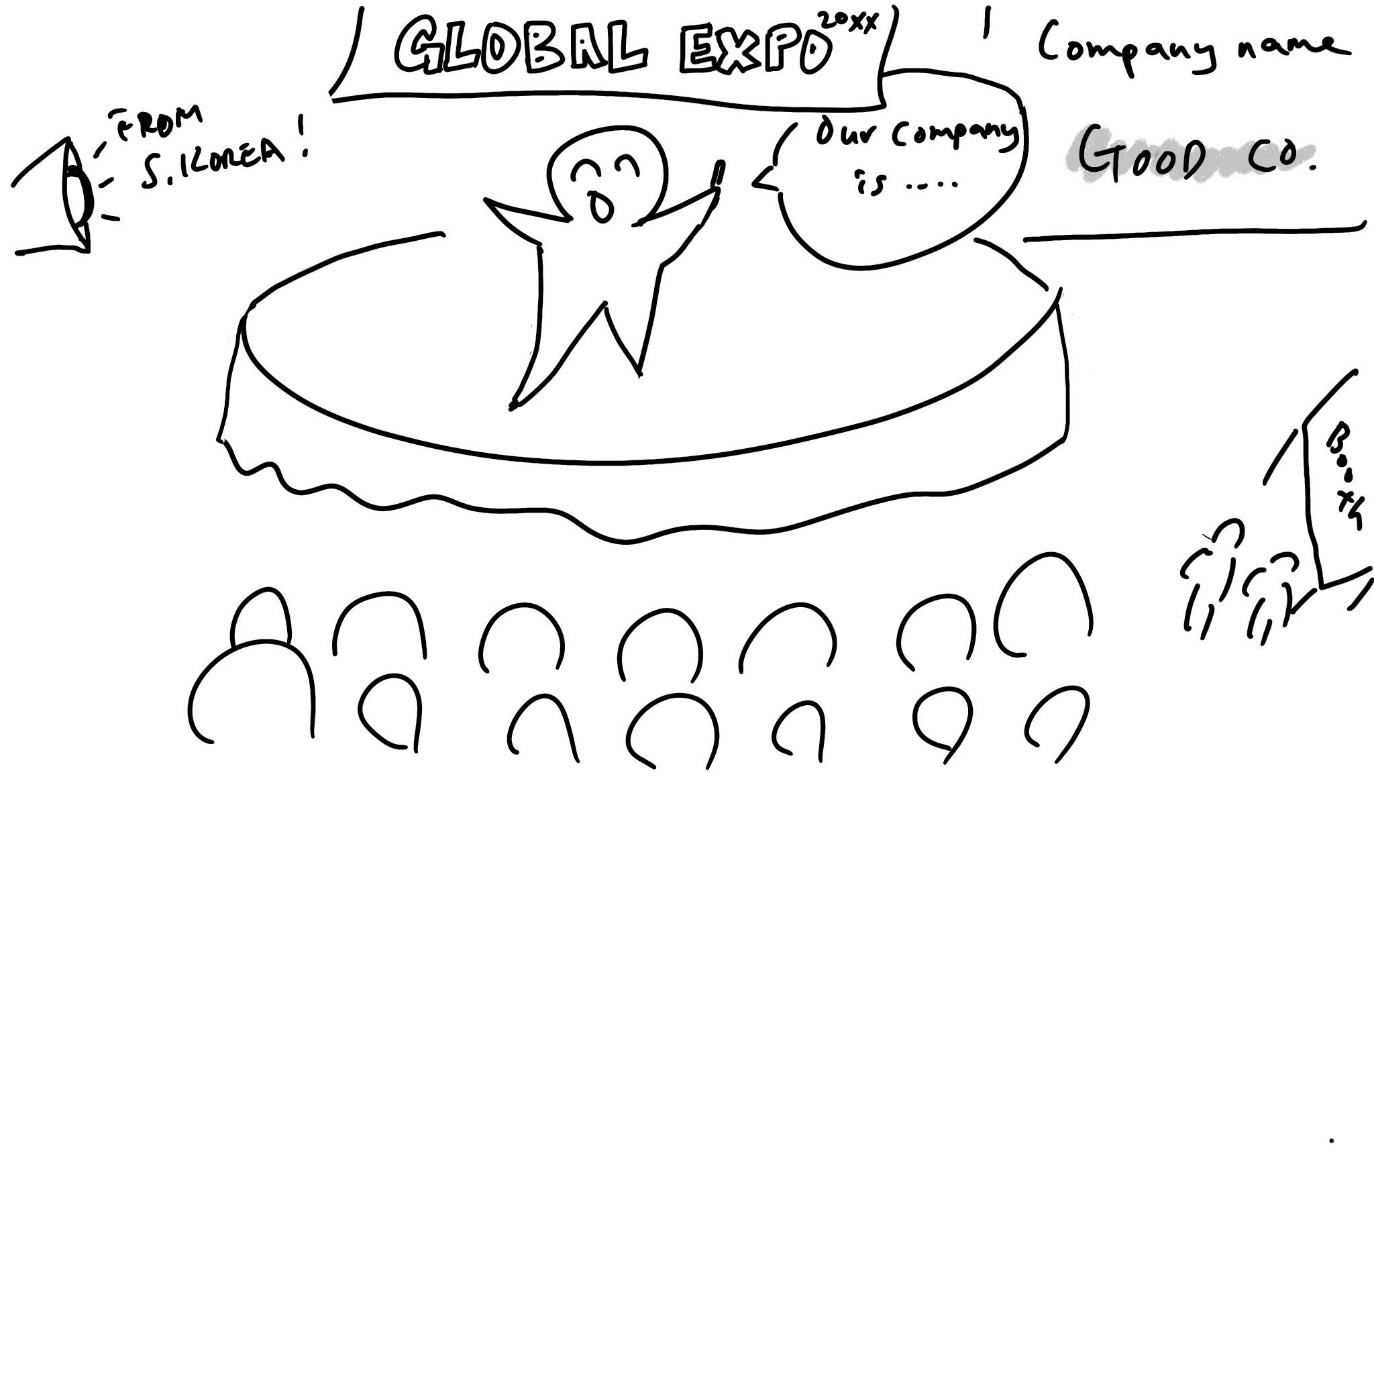 GLOBAL EXPO 20XX
Company name
FROM
S. KOREA!
Our Company
is .....
GOOD CO.